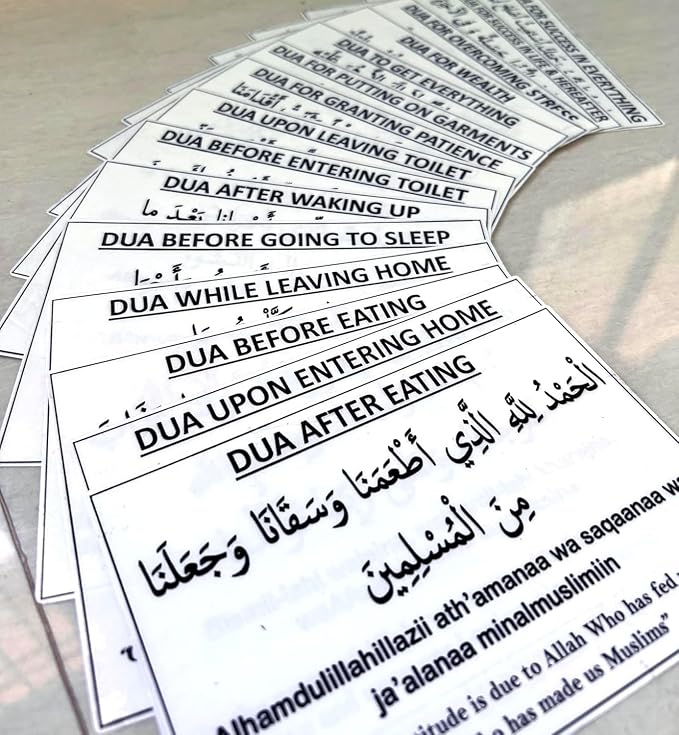 DUA FOR SUCCESS IN EVERYTHING
DUA FOR OVERCOMING STRESS
DUA FOR WEALTH
DUA TO GET EVERYTHING
DUA FOR PUTTING ON GARMENTS
DUA FOR GRANTING PATIENCE
DUA UPON LEAVING TOILET
DUA BEFORE ENTERING TOILET
DUA AFTER WAKING UP
DUA BEFORE GOING TO SLEEP
DUA WHILE LEAVING HOME
DUA BEFORE EATING
DUA UPON ENTERING HOME
DUA AFTER EATING
الْحَمْدُ لِلَّهِ الَّذِي أَطْعَمَنَا وَسَقَانَا وَجَعَلَنَا
مِنَ الْمُسْلِمِينَ
Alhamdulillahillazii ath'amanaa wa saqaanaa wa
ja'alanaa minalmuslimiin
is due to Allah Who has fed
has made us Muslims”